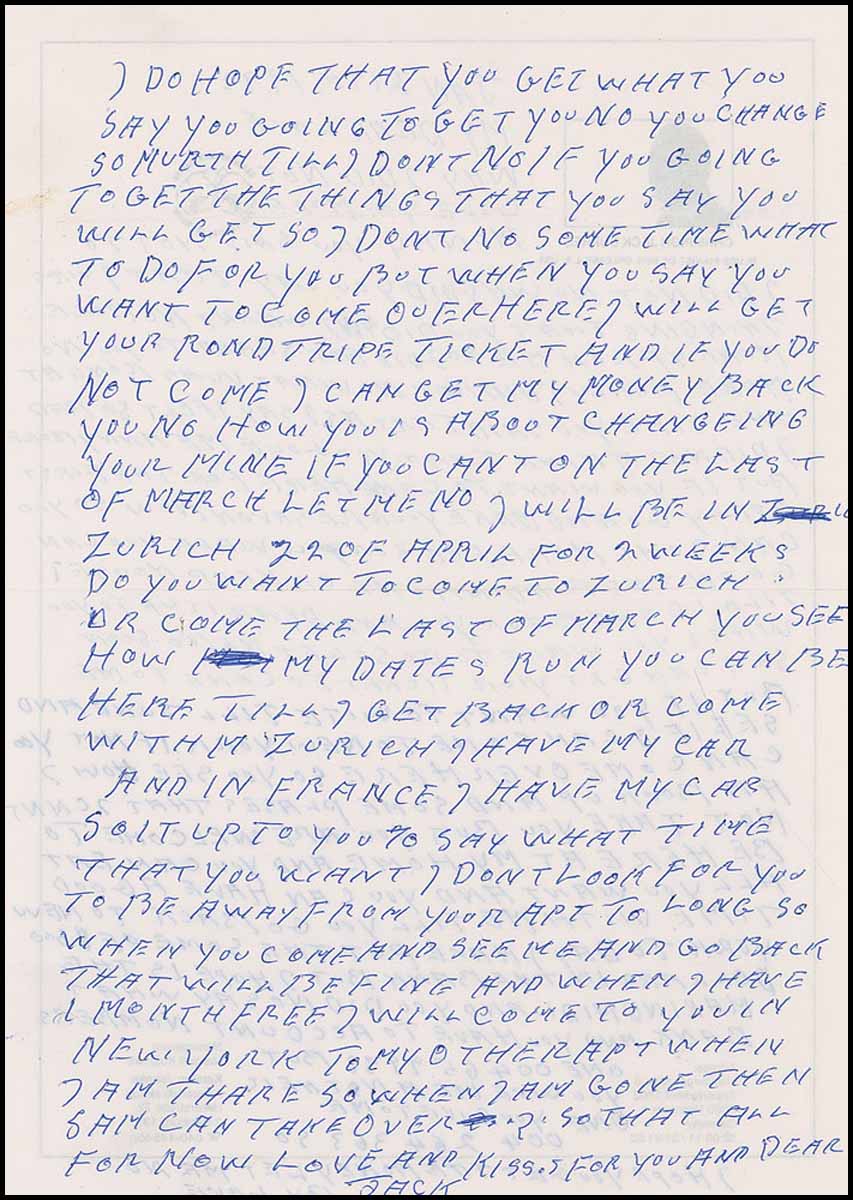 I DO HOPE THAT YOU GET WHAT YOU
SAY YOU GOING TO GET YOU NO YOU CHANGE
SO MURTH TILL I DONT NO IF YOU GOING
TO GET THE THINGS THAT YOU SAY YOU
WILL GET SO I DONT NO SOME TIME WHAT
TO DO FOR YOU BUT WHEN YOU SAY YOU
WANT TO COME OVER HERE I WILL GET
YOUR ROND TRIPE TICKET AND IF YOU DO
NOT COME I CAN GET MY MONEY BACK
YOU NO HOW YOU IS ABOUT CHANGEING
YOUR MINE IF YOU CANT ON THE LAST
OF MARCH LET ME NO I WILL BE IN
ZURICH 22 OF APRIL FOR 2 WEEKS
DO YOU WANT TO COME TO ZURICH
OR COME THE LAST OF MARCH YOU SEE
HOW MY DATES RUN YOU CAN BE
HERE TILL I GET BACK OR COME
WITH M ZURICH I HAVE MY CAR
AND IN FRANCE I HAVE MY CAR
SO IT UP TO YOU TO SAY WHAT TIME
THAT YOU WANT I DONT LOOK FOR YOU
TO BE AWAY FROM YOUR APT TO LONG SO
WHEN YOU COME AND SEE ME AND GO BACK
THAT WILL BE FINE AND WHEN I HAVE
1 MONTH FREE I WILL COME TO YOU IN
NEW YORK TO MY OTHER APT WHEN
I AM THARE SO WHEN I AM GONE THEN
SAM CAN TAKE OVER SO THAT ALL
FOR NOW LOVE AND KISS.S FOR YOU AND DEAR
JACK